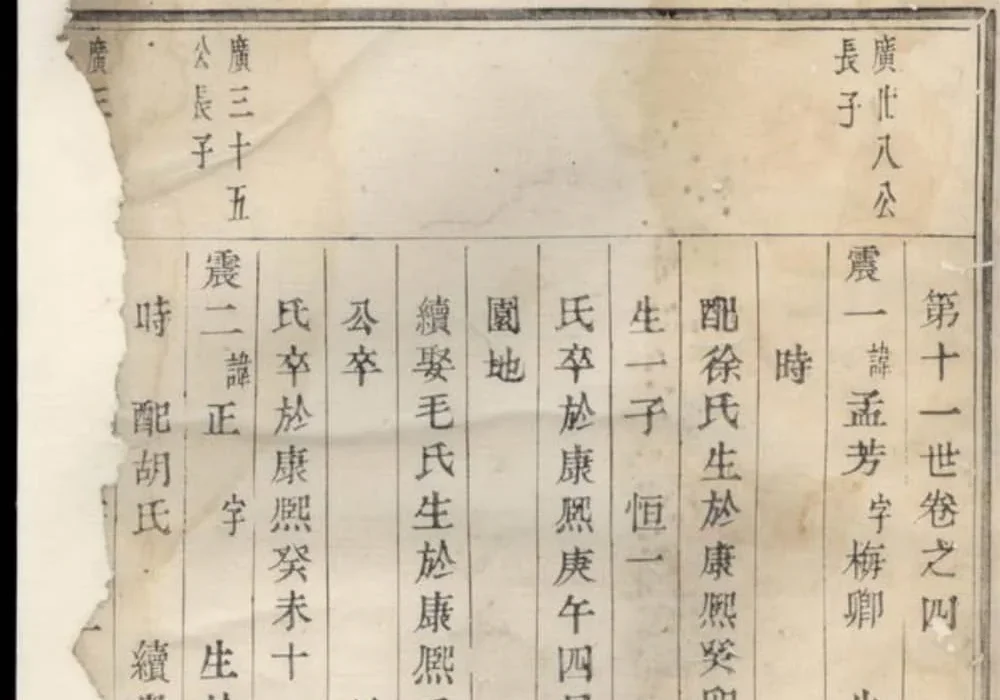 第十一世卷之四
廣廿八公
長子
震一諱孟芳字梅卿
時
配徐氏生於康熙癸卯
生一子 恒一
氏卒於康熙庚午四
園地
續娶毛氏生於康熙
公卒
氏卒於康熙癸未十
廣三十五
公長子
震二諱正 字 生
時 配胡氏 續
廣三